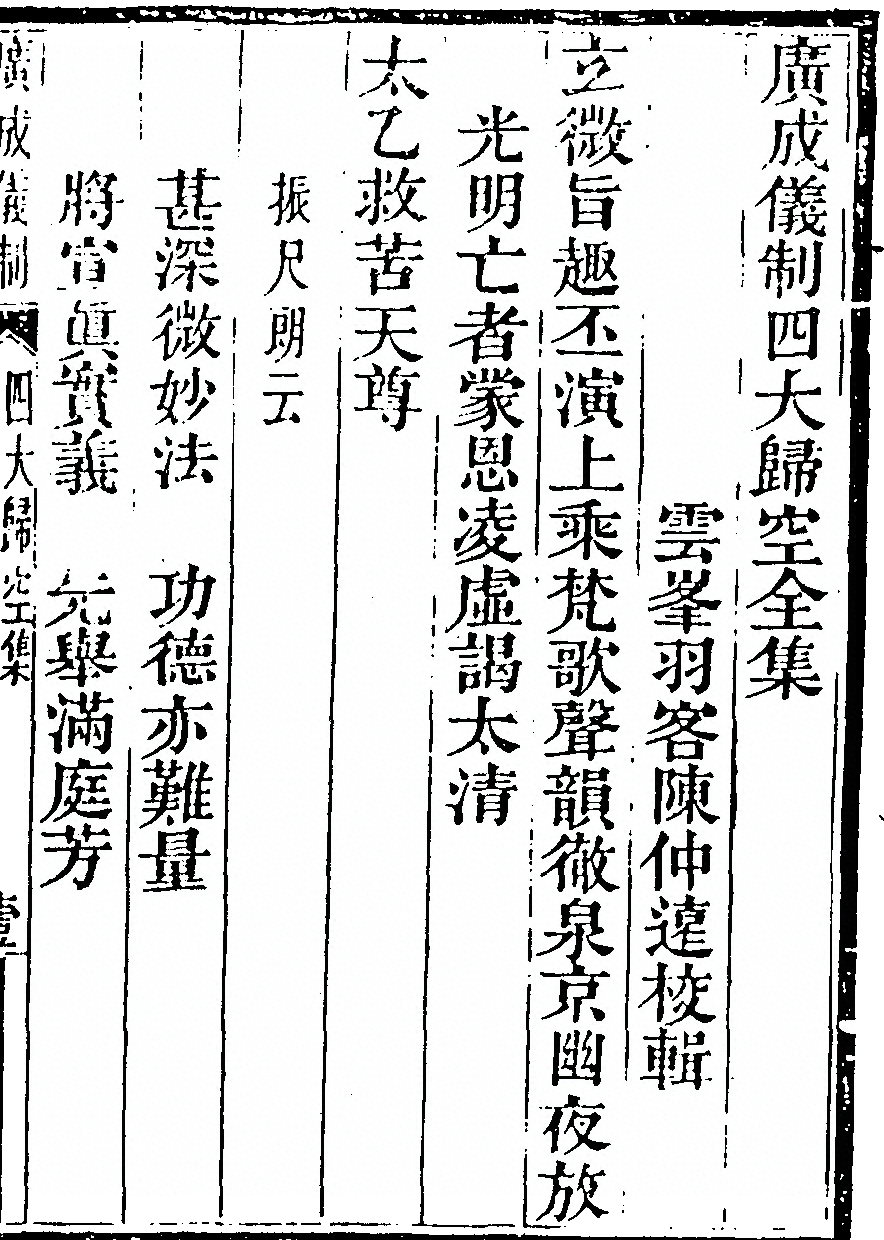 廣成儀制四大歸空全集
雲峯羽客陳仲遠校輯
立微旨趣丕演上乘梵歌聲韻徹泉京幽夜放
光明亡者蒙恩凌虛謁太清
太乙救苦天尊
振尺朗云
甚深微妙法 功德亦難量
將宣眞實義 先舉滿庭芳
廣成儀制 四大歸空集 壹